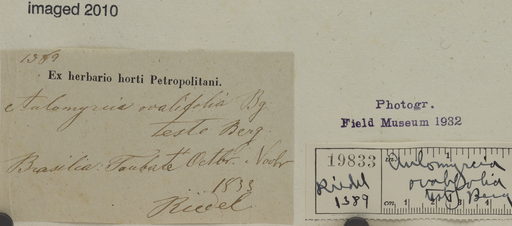 imaged 2010
1389
Ex herbario horti Petropolitani.
Aulomyrcia ovalifolia Bg
teste Berg.
Brasilia: Taubaté Octbr. Novbr
1833
Riedel
Photogr.
Field Museum 1932
19833
Aulomyrcia
ovalifolia
Riedel
1389
test Berg
cm.